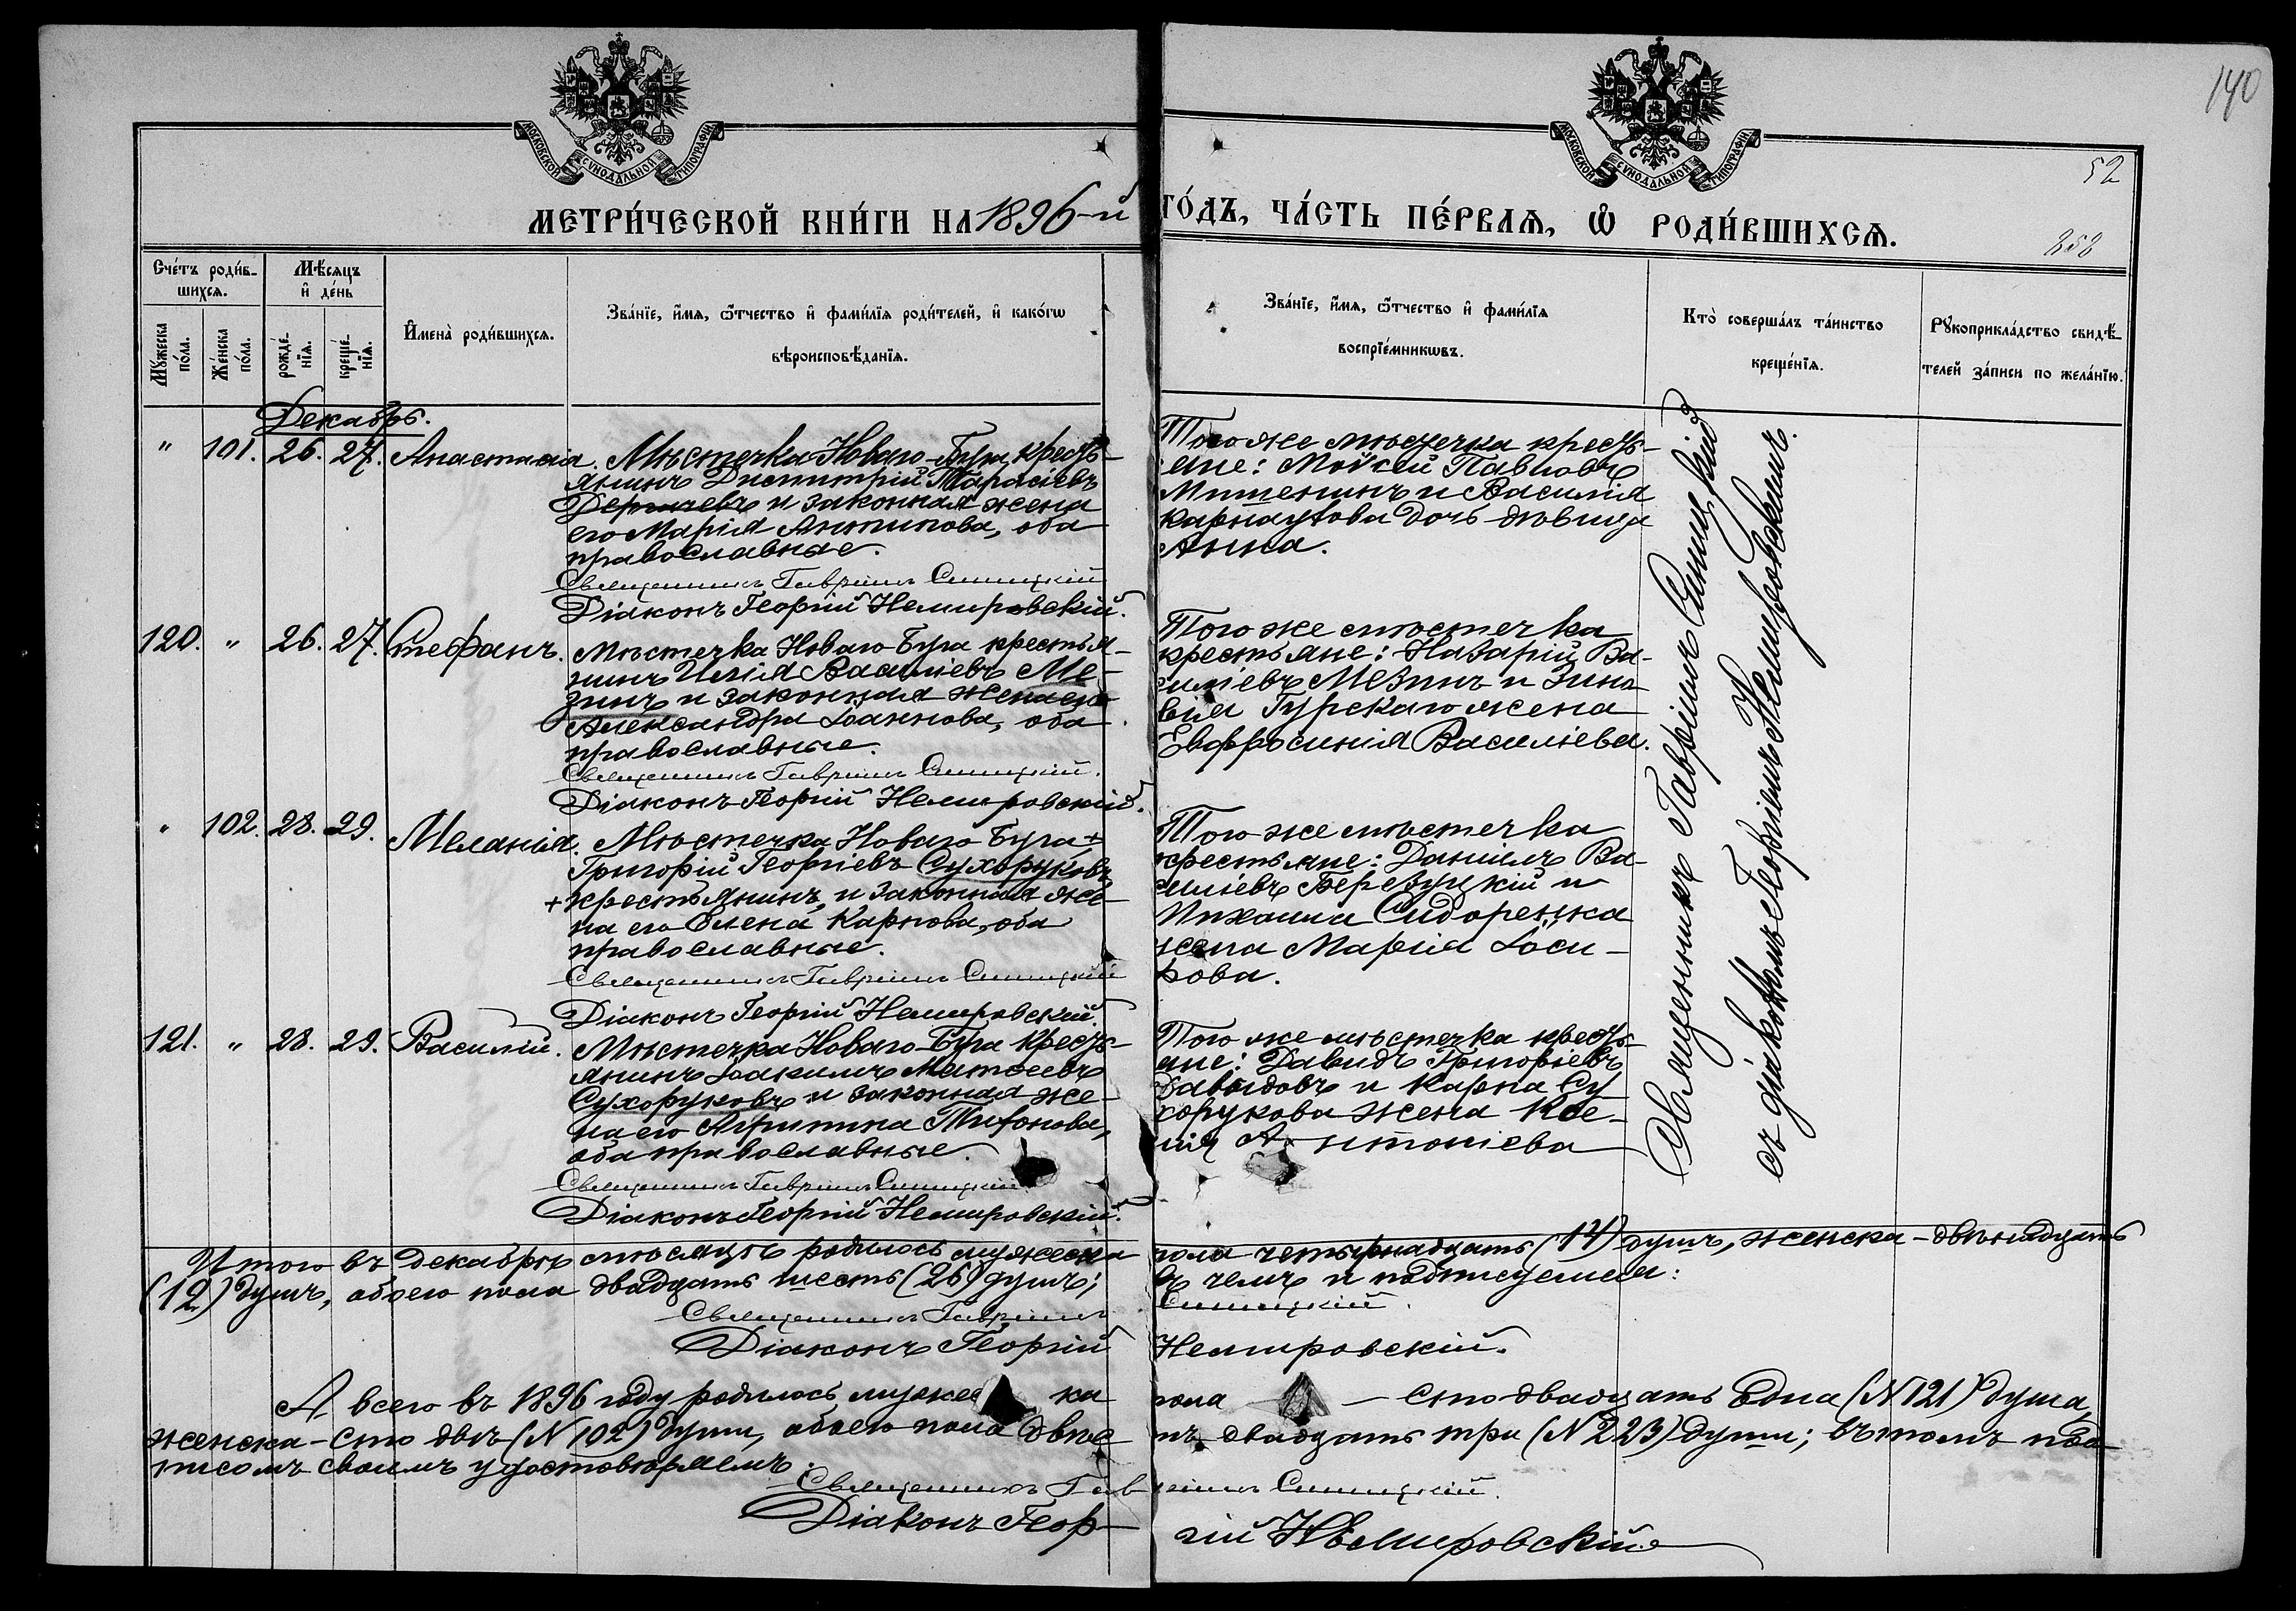 140
52
252
МОСКОВСКОЙ СѴНОДАЛЬНОЙ ТИПОГРАФІИ
МОСКОВСКОЙ СѴНОДАЛЬНОЙ ТИПОГРАФІИ
МЕТРИ́ЧЕСКОЙ КНИ́ГИ НА 1896-й ГО́ДЪ, ЧА́СТЬ ПЕ́РВАѦ, Ѡ҆ РОДИ́ВШИХСѦ.
Сче́тъ роди́в-
шихсѧ.
Мѣ́сѧцъ
и҆ де́нь
Мꙋ́жеска по́ла.
Же́нска по́ла.
рожде́-нїѧ.
креще́-нїѧ.
И҆мена̀ роди́вшихсѧ.
Зва́нїе, и҆́мѧ, ѻ҆́тчество и҆ фами́лїѧ роди́телей, и҆ како́гѡ
вѣроисповѣ́данїѧ.
Зва́нїе, и҆́мѧ, ѻ҆́тчество и҆ фами́лїѧ
воспрїе́мникѡвъ.
Кто̀ соверша́лъ та́инство
креще́нїѧ.
Рꙋкоприкла́дство свидѣ́-
телей за́писи по жела́нїю.
Декабрь.
" 101. 26. 27. Анастасія. Мѣстечка Новаго-Буга кресть-
янинъ Димитрій Тарасіевъ
Дергачевъ и законная жена
его Марія Антипова, оба
православные.
Священникъ Гавріилъ Синицкій
Діаконъ Георгій Немировскій.
Того же мѣстечка кресть-
яне: Моѵсей Павловъ
Митенинъ и Василія
Карнаухова дочь дѣвица
Анна.
120. " 26. 27. Стефанъ. Мѣстечка Новаго Буга крестья-
нинъ Илія Василіевъ Ме-
зинъ и законная жена его
Александра Іоаннова, оба
православные.
Священникъ Гавріилъ Синицкій.
Діаконъ Георгій Немировскій.
Того же мѣстечка
крестьяне: Назарій Ва-
силіевъ Мезинъ и Зино-
вія Гурскаго жена
Евфросинія Василіева.
" 102. 28. 29. Меланія. Мѣстечка Новаго Буга +
Григорій Георгіевъ Сухоруковъ
+ крестьянинъ, и законная же-
на его Елена Карпова, оба
православные.
Священникъ Гавріилъ Синицкій
Діаконъ Георгій Немировскій.
Того же мѣстечка
крестьяне: Даніилъ Ва-
силіевъ Березуцкій и
Михаила Сидоренка
жена Марія Іоси-
фова.
121. " 28. 29. Василій. Мѣстечка Новаго-Буга кресть-
янинъ Іоакимъ Матѳеевъ
Сухоруковъ и законная же-
на его Агрипина Тифонова,
оба православные.
Священникъ Гавріилъ Синицкій
Діаконъ Георгій Немировскій.
Того же мѣстечка кресть-
яне: Давидъ Григоріевъ
Давыдовъ и Карпа Су-
хорукова жена Ксе-
нія Антоніева
Священникъ Гавріилъ Синицкій
съ діакономъ Георгіемъ Немировскимъ.
Итого въ декабрѣ мѣсяцѣ родилось мужеска пола четырнадцать (14) душъ, женска - двѣнадцать
(12) душъ, обоего пола двадцать шесть (26) душъ; въ чемъ и подписуемся:
Священникъ Гавріилъ Синицкій.
Діаконъ Георгій Немировскій.
А всего въ 1896 году родилось мужеска пола — сто двадцать одна (№ 121) душа,
женска - сто двѣ (№ 102) души, обоего пола двѣс тѣ двадцать три (№ 223) души; въ томъ под-
писомъ своимъ удостовѣряемъ.
Священникъ Гавріилъ Синицкій.
Діаконъ Геор- гій Немировскій